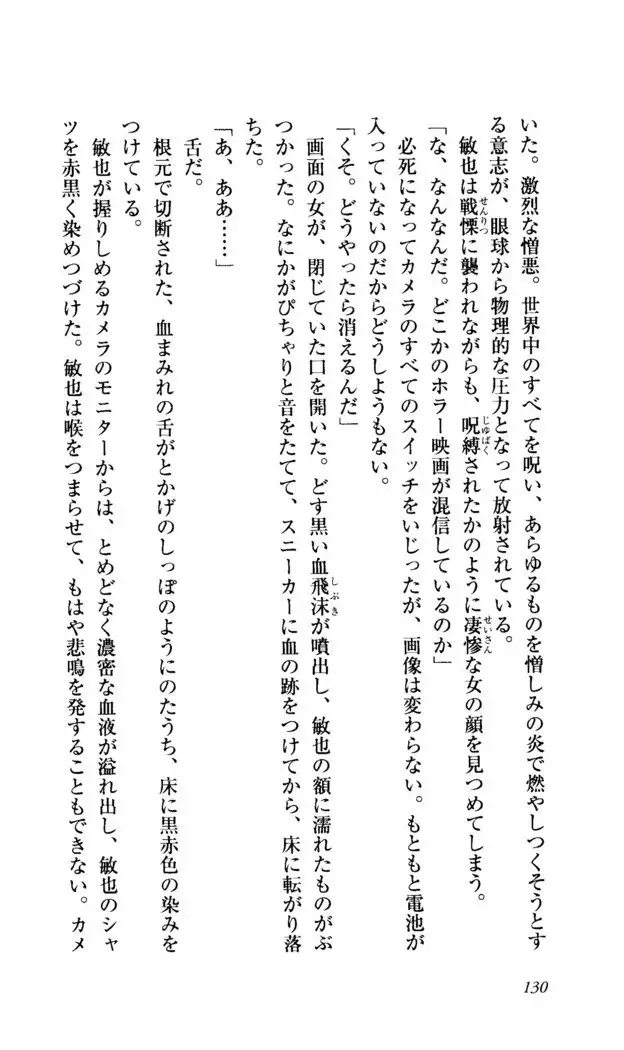 いた。激烈な憎悪。世界中のすべてを呪い、あらゆるものを憎しみの炎で燃やしつくそうとす
る意志が、眼球から物理的な圧力となって放射されている。
敏也は戦慄に襲われながらも、呪縛されたかのように凄惨な女の顔を見つめてしまう。
せんりつ
じゅばく
せいさん
「な、なんなんだ。どこかのホラー映画が混信しているのか」
必死になってカメラのすべてのスイッチをいじったが、画像は変わらない。もともと電池が
入っていないのだからどうしようもない。
「くそ。どうやったら消えるんだ」
画面の女が、閉じていた口を開いた。どす黒い血飛沫が噴出し、敏也の額に濡れたものがぶ
しぶき
つかった。なにかがぴちゃりと音をたてて、スニーカーに血の跡をつけてから、床に転がり落
ちた。
「あ、ああ……」
舌だ。
根元で切断された、血まみれの舌がとかげのしっぽのようにのたうち、床に黒赤色の染みを
つけている。
敏也が握りしめるカメラのモニターからは、とめどなく濃密な血液が溢れ出し、敏也のシャ
ツを赤黒く染めつづけた。敏也は喉をつまらせて、もはや悲鳴を発することもできない。カメ
130